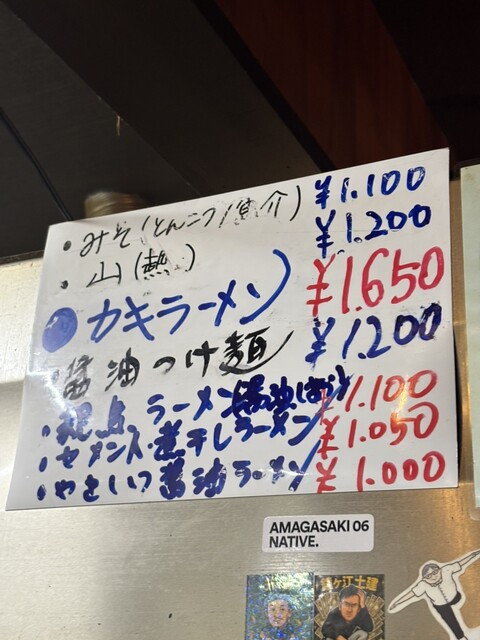 ・みそ(とんこつ/魚介) ¥1.100
・山(熱) ¥1.200
カキラーメン ¥1.650
醤油つけ麺 ¥1.200
・原点 ラーメン ¥1.100
・セメント煮干しラーメン ¥1.050
・やさいつ醤油ラーメン ¥1.000
AMAGASAKI 06
NATIVE.
ヶ江土建